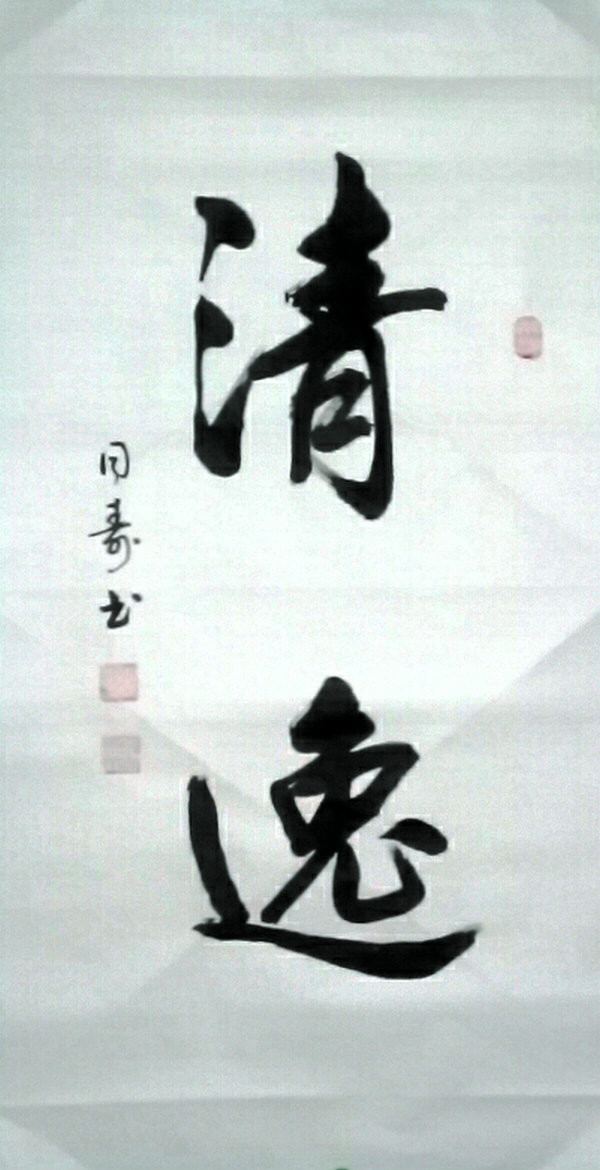 清逸
同寿书